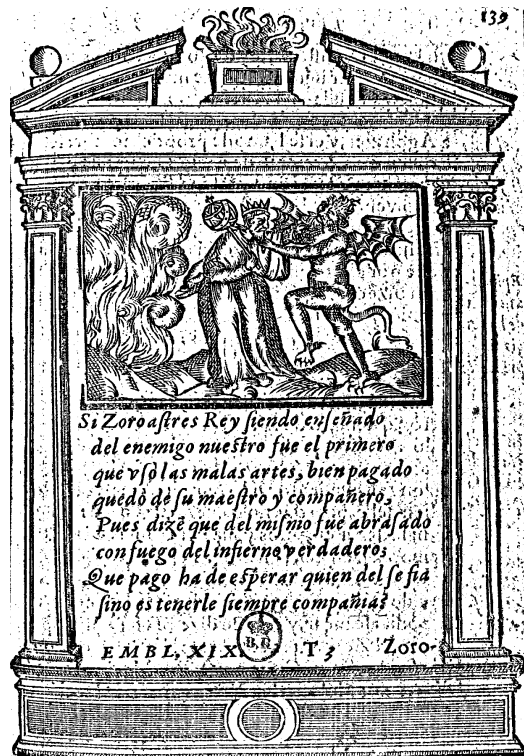 139
Si Zoroastres Rey siendo enseñado
del enemigo nuestro fue el primero
que vso las malas artes, bien pagado
quedò de su maestro y compañero,
Pues dizẽ que del mismo fue abrasado
con fuego del infierno verdadero;
Que pago ha de esperar quien del se fia
sino es tenerle siempre compañia?
EMBL. XIX. T 3 Zoro-
B. R.